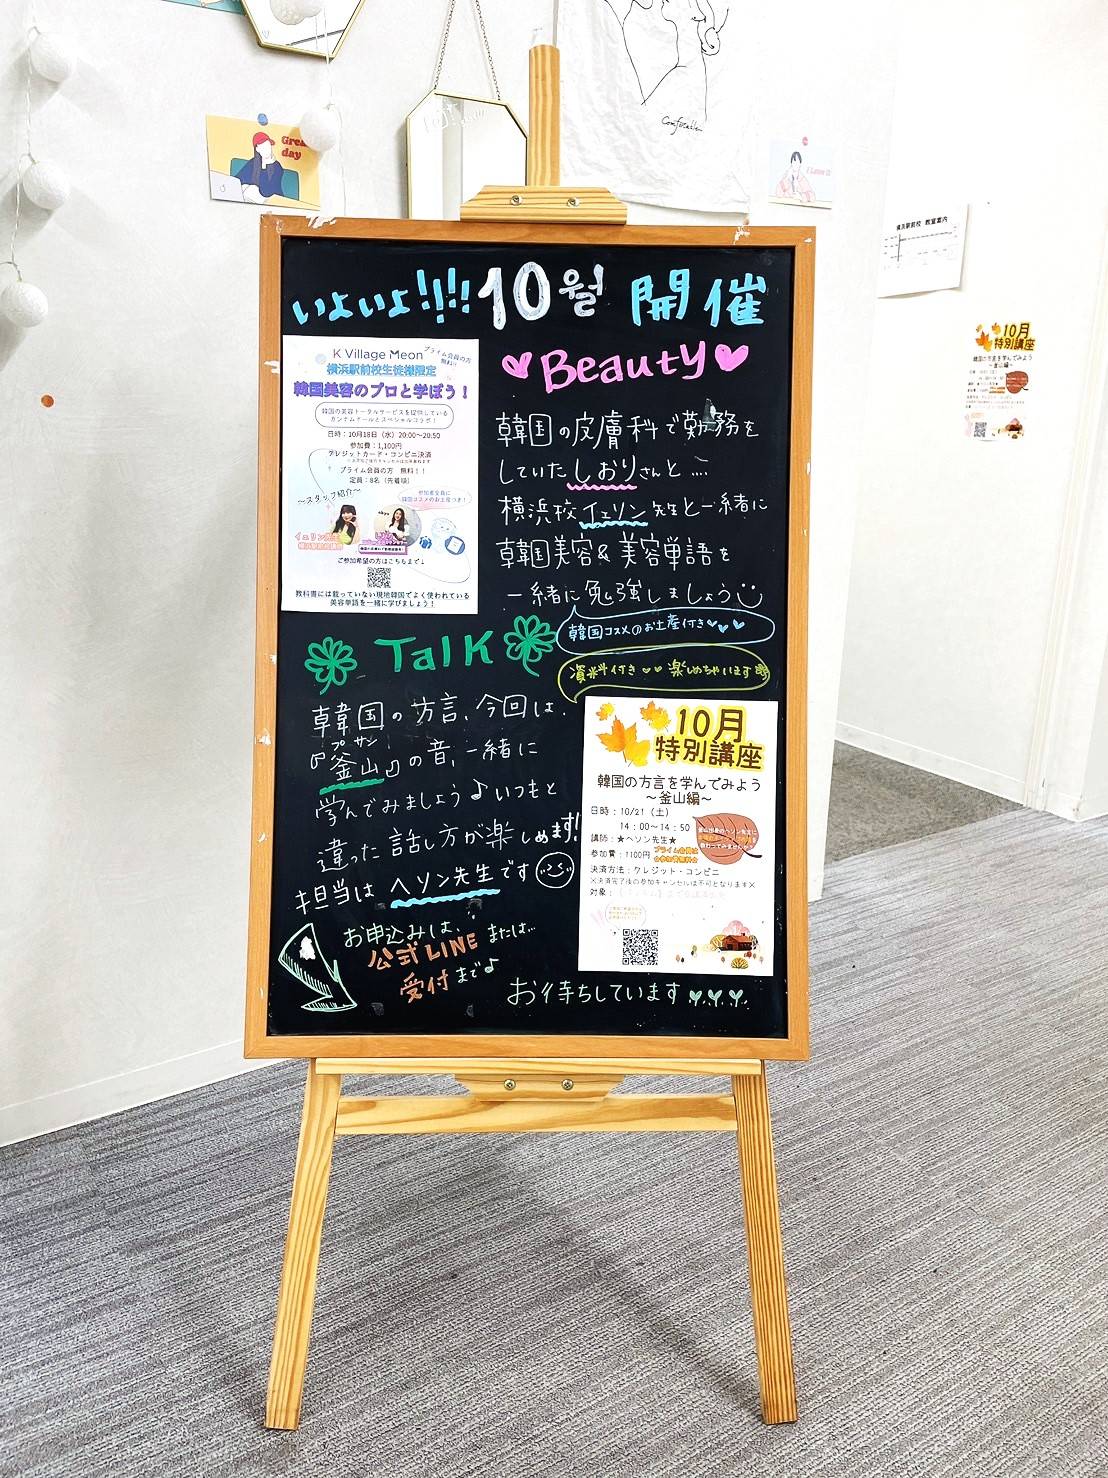 Great
day
Comfortable
I Love U
横浜駅前校 教室案内
いよいよ!!!!10월 開催
K Village Meon
プライム会員の方
無料!!
横浜駅前校生徒様限定
韓国美容のプロと学ぼう！
韓国の美容トータルサービスを提供している
カンナムドールとスペシャルコラボ！
日時：10月18日（水）20:00〜20:50
参加費：1,100円
クレジットカード・コンビニ決済
プライム会員の方 無料！！
定員：8名（先着順）
〜スタッフ紹介〜
参加者全員に
韓国コスメのお土産つき！
イェリン先生
横浜駅前校講師
ご参加希望の方はこちらまで↓
教科書には載っていない現地韓国でよく使われている
美容単語を一緒に学びましょう！
Beauty
韓国の皮膚科で勤務を
していたしおりさんと…
横浜校イェリン先生と一緒に
韓国美容&美容単語を
一緒に勉強しましょう
韓国コスメのお土産付き
資料付き 楽しめちゃいます
Talk
韓国の方言、今回は、
プサン
『釜山』の音、一緒に
学んでみましょう♪いつもと
違った話し方が楽しめます!
担当はヘソン先生です
お申込みは、
公式LINE または…
受付まで♪
お待ちしています
10月
特別講座
韓国の方言を学んでみよう
〜釜山編〜
日時：10/21（土）
14：00〜14：50
講師：★ヘソン先生★
参加費：1100円
プライム会員は
参加費無料
釜山出身のヘソン先生に
教わってみませんか？
決済方法：クレジット・コンビニ
×決済完了後の参加キャンセルは不可となります×
対象：
10月
特別講座
韓国の方言を学んでみよう
〜釜山編〜